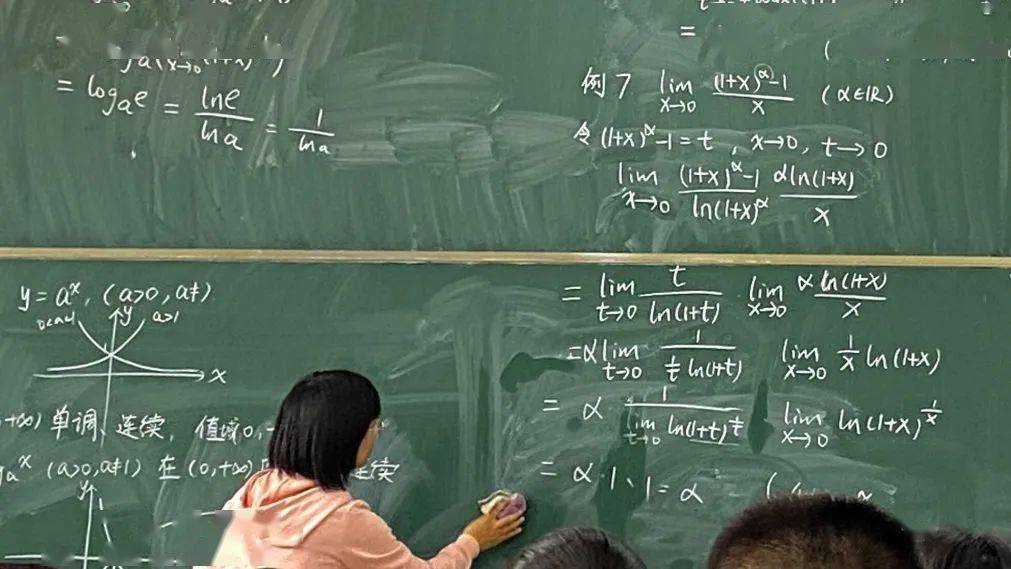 = logₐe = lne/lna = 1/lna
例7 lim x→0 ((1+x)^α-1)/x (α∈IR)
令(1+x)^α-1=t, x→0, t→0
lim x→0 ((1+x)^α-1)/(ln(1+x)^α) (αln(1+x))/x
y=a^x, (a>0, a≠1)
0<a<1 y a>1
x
+∞) 单调、连续, 值域0,
a^x (a>0,a≠1) 在(0,+∞) 连续
y
= lim t→0 t/(ln(1+t)) · lim x→0 (αln(1+x))/x
=α lim t→0 1/((1/t) ln(1+t)) lim x→0 (1/x) ln(1+x)
= α 1/(lim t→0 ln(1+t)^(1/t)) lim x→0 ln(1+x)^(1/x)
= α·1·1=α